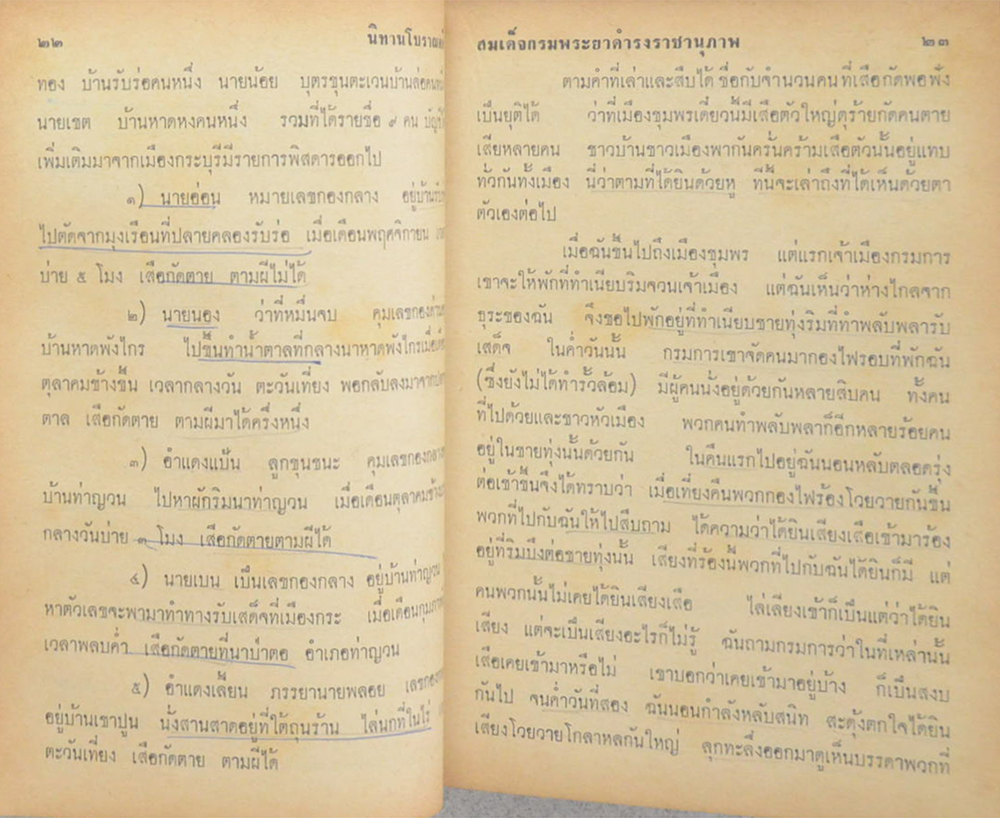 ๒๒ นิทานโบราณ
ทอง บ้านรับร่อคนหนึ่ง นายน้อย บุตรขุนตะเวนบ้านล่อคน
นายเขต บ้านหาดหงคนหนึ่ง รวมที่ได้รายชื่อ ๙ คน
เพิ่มเติมมาจากเมืองกระบุรีมีรายการพิสดารออกไป
๑) นายอ่อน หมายเลขกองกลาง อยู่บ้านรับ
ไปตัดจากมุงเรือนที่ปลายคลองรับร่อ เมื่อเดือนพฤศจิกายน
บ่าย ๕ โมง เสือกัดตาย ตามผีไม่ได้
๒) นายนอง ว่าที่หมื่นจบ คุมเลขกอง
บ้านหาดพังไกร ไปขึ้นทำน้ำตาลที่กลางนาหาดพังไกรเมื่อ
ตุลาคมข้างขึ้น เวลากลางวัน ตะวันเที่ยง พอกลับลงมาจาก
ตาล เสือกัดตาย ตามผีมาได้ครึ่งหนึ่ง
๓) อำแดงแป้น ลูกขุนชนะ คุมเลขกองกลาง
บ้านท่าญวน ไปหาผักริมนาท่าญวน เมื่อเดือนตุลาคมข้าง
กลางวันบ่าย ๓ โมง เสือกัดตายตามผีได้
๔) นายเบน เป็นเลขกองกลาง อยู่บ้านท่าญวน
หาตัวเลขจะพามาทำทางรับเสด็จที่เมืองกระ เมื่อเดือนกุมภา
เวลาพลบค่ำ เสือกัดตายที่นาป่าตอ อำเภอท่าญวน
๕) อำแดงเลี่ยน ภรรยานายพลอย เลขกอง
อยู่บ้านเขาปูน นั่งสานสาดอยู่ที่ใต้ถุนร้าน ไล่นกที่ในไร่
ตะวันเที่ยง เสือกัดตาย ตามผีได้
สมเด็จกรมพระยาดำรงราชานุภาพ ๒๓
ตามคำที่เล่าและสืบได้ ชื่อกับจำนวนคนที่เสือกัดพอฟัง
เป็นยุติได้ ว่าที่เมืองชุมพรเดี๋ยวนี้มีเสือตัวใหญ่ดุร้ายกัดคนตาย
เสียหลายคน ชาวบ้านชาวเมืองพากันครั่นคร้ามเสือตัวนั้นอยู่แทบ
ทั่วกันทั้งเมือง นี่ว่าตามที่ได้ยินด้วยหู ทีนี้จะเล่าถึงที่ได้เห็นด้วยตา
ตัวเองต่อไป
เมื่อฉันขึ้นไปถึงเมืองชุมพร แต่แรกเจ้าเมืองกรมการ
เขาจะให้พักที่ทำเนียบริมจวนเจ้าเมือง แต่ฉันเห็นว่าห่างไกลจาก
ธุระของฉัน จึงขอไปพักอยู่ที่ทำเนียบชายทุ่งริมที่ทำพลับพลารับ
เสด็จ ในค่ำวันนั้น กรมการเขาจัดคนมากองไฟรอบที่พักฉัน
(ซึ่งยังไม่ได้ทำรั้วล้อม) มีผู้คนนั่งอยู่ด้วยกันหลายสิบคน ทั้งคน
ที่ไปด้วยและชาวหัวเมือง พวกคนทำพลับพลาก็อีกหลายร้อยคน
อยู่ในชายทุ่งนั้นด้วยกัน ในคืนแรกไปอยู่ฉันนอนหลับตลอดรุ่ง
ต่อเช้าขึ้นจึงได้ทราบว่า เมื่อเที่ยงคืนพวกกองไฟร้องโวยวายกันขึ้น
พวกที่ไปกับฉันให้ไปสืบถาม ได้ความว่าได้ยินเสียงเสือเข้ามาร้อง
อยู่ที่ริมบึงต่อชายทุ่งนั้น เสียงที่ร้องนี้พวกที่ไปกับฉันได้ยินก็มี แต่
คนพวกนั้นไม่เคยได้ยินเสียงเสือ ไล่เลียงเข้าก็เป็นแต่ว่าได้ยิน
เสียง แต่จะเป็นเสียงอะไรก็ไม่รู้ ฉันถามกรมการว่าในที่เหล่านั้น
เสือเคยเข้ามาหรือไม่ เขาบอกว่าเคยเข้ามาอยู่บ้าง ก็เป็นสงบ
กันไป จนค่ำวันที่สอง ฉันนอนกำลังหลับสนิท สะดุ้งตกใจได้ยิน
เสียงโวยวายโกลาหลกันใหญ่ ลุกทะลึ่งออกมาดูเห็นบรรดาพวกที่